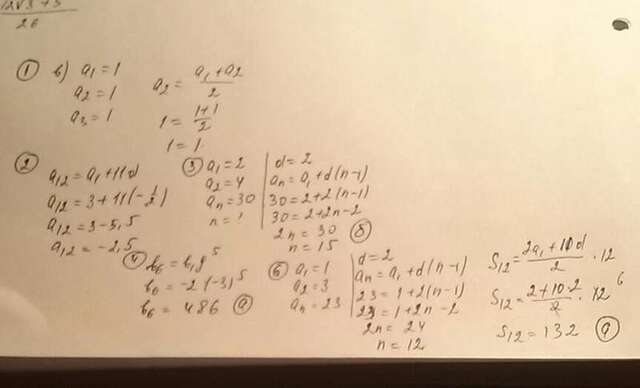 12√3 + 3
26
① b) a₁ = 1
a₂ = 1
a₃ = 1
a₂ = (a₁ + a₂)/2
1 = (1+1)/2
1 = 1
②
a₁₂ = a₁ + 11d
a₁₂ = 3 + 11(-1/2)
a₁₂ = 3 - 5,5
a₁₂ = -2,5
③ a₁ = 2
a₂ = 4
aₙ = 30
n = ?
d = 2
aₙ = a₁ + d(n-1)
30 = 2 + 2(n-1)
30 = 2 + 2n - 2
2n = 30
n = 15 ⓑ
④ b₆ = b₁q⁵
b₆ = -2(-3)⁵
b₆ = 486 ⓐ
⑥ a₁ = 1
a₂ = 3
aₙ = 23
d = 2
aₙ = a₁ + d(n-1)
23 = 1 + 2(n-1)
23 = 1 + 2n - 2
2n = 24
n = 12
S₁₂ = (2a₁ + 10d)/2 · 12
S₁₂ = (2 + 10·2)/2 · 12 6
S₁₂ = 132 ⓐ